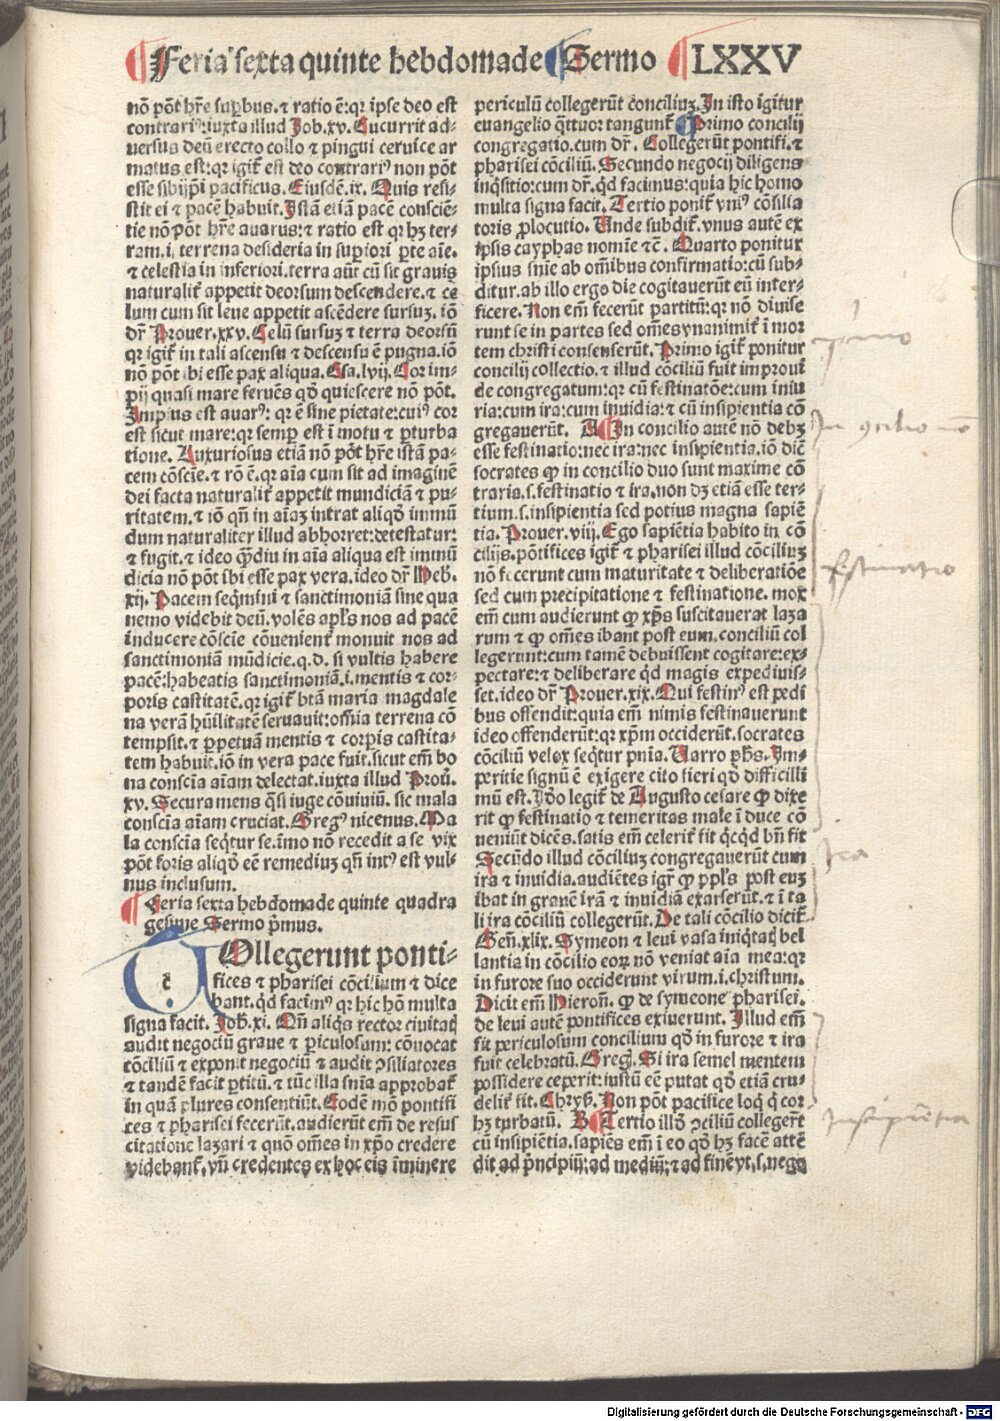 Feria sexta quinte hebdomade Sermo LXXV
nō pōt hr̄e suꝑbus. ⁊ ratio ē: qr ipse deo est
contrariꝰ: iuxta illud Job. xv. Cucurrit ad-
uersus deū erecto collo ⁊ pingui ceruice ar
matus est: qr igit̄ est deo contrariꝰ non pōt
esse sibijpi pacificus. Eiusdē. ix. Quis resi-
stit ei ⁊ pacē habuit. Istā etiā pacē consciē-
tie nō pōt hr̄e auarus: ⁊ ratio est qr hꝫ ter-
ram. i. terrena desideria in suꝑiori ꝑte aīe.
⁊ celestia in inferiori. terra aūt cū sit grauis
naturalit̄ appetit deorsum descendere. ⁊ ce
lum cum sit leue appetit ascēdere sursuꝫ. iō
dr̄ Prouer. xxv. Celū sursuꝫ ⁊ terra deorsū
qr igit̄ in tali ascensu ⁊ descensu ē pugna. iō
nō pōt ibi esse pax aliqua. Esa. lvij. Cor im-
pij quasi mare feruēs qd̄ quiescere nō pōt.
Impius est auarꝰ: qr ē sine pietate: cuiꝰ cor
est sicut mare: qr semꝑ est ī motu ⁊ ꝑturba
tione. Luxuriosus etiā nō pōt hr̄e istā pa-
cem cōscīe. ⁊ rō ē. qr aīa cum sit ad imaginē
dei facta naturalit̄ appetit mundiciā ⁊ pu-
ritatem. ⁊ iō qn̄ in aīaꝫ intrat aliqd̄ immū
dum naturaliter illud abhorret: detestatur:
⁊ fugit. ⁊ ideo qꝫdiu in aīa aliqua est immū
dicia nō pōt ibi esse pax vera. ideo dr̄ Heb.
xij. Pacem seq̄mini ⁊ sanctimoniā sine qua
nemo videbit deū. volēs apl̄s nos ad pacē
inducere cōscīe cōuenient̄ monuit nos ad
sanctimoniā mūdicie. q. d. si vultis habere
pacē: habeatis sanctimoniā. i. mentis ⁊ cor-
poris castitatē. qr igit̄ btā maria magdale
na verā hūilitatē seruauit: om̄ia terrena cō
tempsit. ⁊ ꝑpetuā mentis ⁊ corpis castita-
tem habuit. iō in vera pace fuit. sicut em̄ bo
na conscīa aīam delectat. iuxta illud Prou̅.
xv. Secura mens qsi iuge cōuiuiū. sic mala
conscīa aīam cruciat. Gregꝰ nicenus. Ma
la conscīa seq̄tur se. imo nō recedit a se vix
pōt foris aliqd̄ eē remediuꝫ qn̄ intꝰ est vul-
nus inclusum.
Feria sexta hebdomade quinte quadra
gesime Sermo pͥmus.
COllegerunt ponti-
fices ⁊ pharisei cōcilium ⁊ dice
bant. qd̄ facimꝰ qr hic hō multa
signa facit. Joh̄. xi. Qn̄ aliqs rector ciuitatꝭ
audit negociū graue ⁊ ꝑiculosum: cōuocat
cōciliū ⁊ exponit negociū ⁊ audit ꝯsiliatores
⁊ tandē facit ꝑtitū. ⁊ tūc illa snīa approbat̄
in quā plures consentiūt. Eodē mō pontifi
ces ⁊ pharisei fecerūt. audierūt em̄ de resus
citatione lazari ⁊ quō om̄es in xpō credere
videbant̄. vn̄ credentes ex hoc eis īminere
periculū collegerūt conciliuꝫ. In isto igitur
euangelio qttuor tangunt̄. Primo concilij
congregatio. cum dr̄. Collegerūt pontifi. ⁊
pharisei cōciliū. Secundo negocij diligens
inq̄sitio: cum dr̄. qd̄ facimus: quia hic homo
multa signa facit. Tertio ponit̄ vniꝰ cōsilia
toris ꝓlocutio. Unde subdit̄. vnus autē ex
ipsis cayphas nomīe ⁊c̄. Quarto ponitur
ipsius snīe ab om̄ibus confirmatio: cū sub-
ditur. ab illo ergo die cogitauerūt eū inter-
ficere. Non em̄ fecerūt partitū: qr nō diuise
runt se in partes sed om̄es vnanimit̄ ī mor
tem christi consenserūt. Primo igit̄ ponitur
concilij collectio. ⁊ illud cōciliū fuit improui
de congregatum: qr cū festinatōe: cum iniu
ria: cum ira: cum inuidia: ⁊ cū insipientia cō
gregauerūt. A In concilio autē nō debꝫ
esse festinatio: nec ira: nec insipientia. iō dic̄
socrates ꝙ in concilio duo sunt maxime cō
traria. s. festinatio ⁊ ira. non dꝫ etiā esse ter-
tium. s. insipientia sed potius magna sapiē
tia. Prouer. viij. Ego sapiētia habito in cō
cilijs. pōtifices igit̄ ⁊ pharisei illud cōciliuꝫ
nō fecerunt cum maturitate ⁊ deliberatiōe
sed cum precipitatione ⁊ festinatione. mox
em̄ cum audierunt ꝙ xp̄s suscitauerat laza
rum ⁊ ꝙ om̄es ibant post eum. conciliū col
legerunt: cum tamē debuissent cogitare: ex-
pectare: ⁊ deliberare qd̄ magis expediuis-
set. ideo dr̄ Prouer. xix. Qui festinꝰ est pedi
bus offendit: quia em̄ nimis festinauerunt
ideo offenderūt: qr xp̄m occiderūt. socrates
cōciliū velox seq̄tur pnīa. Varro ph̄s. Im-
peritie signū ē exigere cito fieri qd̄ difficilli
mū est. Ido legit̄ de Augusto cesare ꝙ dixe
rit ꝙ festinatio ⁊ temeritas male ī duce cō
neniūt dicēs. satis em̄ celerit̄ fit qcqd̄ bn̄ fit
Secūdo illud cōciliuꝫ congregauerūt cum
ira ⁊ inuidia. audiētes igr̄ ꝙ ppl̄s post euꝫ
ibat in granē irā ⁊ inuidiā exarserūt. ⁊ ī ta
li ira cōciliū collegerūt. De tali cōcilio dicit̄
Gen̄. xlix. Symeon ⁊ leui vasa iniq̄tatꝭ bel
lantia in cōcilio eoꝝ nō veniat aīa mea: qr
in furore suo occiderunt virum. i. christum.
Dicit em̄ Hieron̄. ꝙ de symeone pharisei.
de leui autē pontifices exiuerunt. Illud em̄
fit periculosum concilium qd̄ in furore ⁊ ira
fuit celebratū. Greg. Si ira semel mentem
possidere ceperit: iustū eē putat qd̄ etiā cru-
delit̄ fit. Chryẜ. Non pōt pacifice loq̄ q̄ cor
hꝫ turbatū. B Tertio illd̄ ꝯciliū collegerūt
cū insipiētia. sapiēs em̄ ī eo qd̄ hꝫ facē attē
dit ad pͥncipiū: ad mediū: ⁊ ad finē vt. s. nego
primo
In ꝯcilio nō
festinatio
Ira
Insipientia
Digitalisierung gefördert durch die Deutsche Forschungsgemeinschaft - DFG